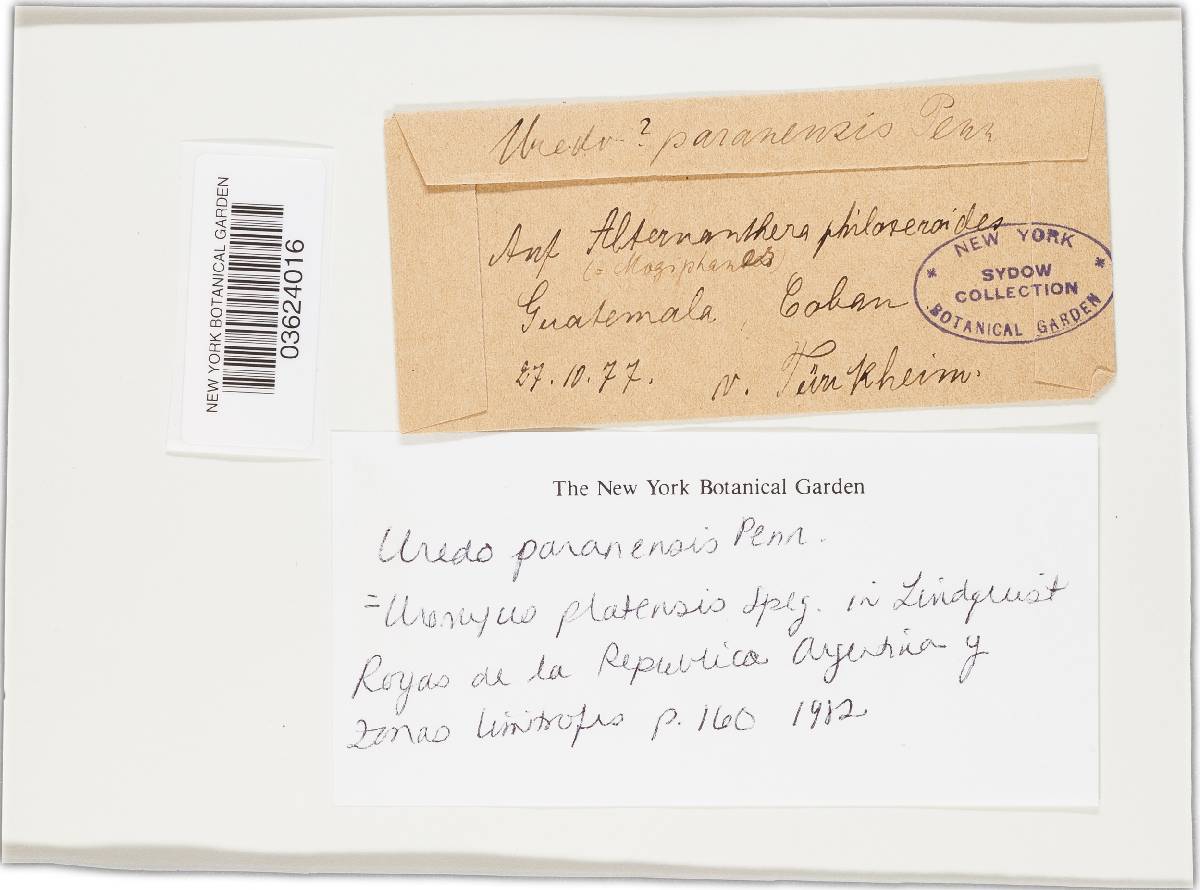 NEW YORK BOTANICAL GARDEN
03624016
Uredo ? paranensis Penn
Auf Alternanthera philoxeroides
(= Mogiphanes)
Guatemala, Coban
27.10.77. v. Türkheim.
* NEW YORK *
SYDOW
COLLECTION
BOTANICAL GARDEN
The New York Botanical Garden
Uredo paranensis Penn.
= Uromyces platensis Speg. in Lindquist
Royas de la Republica Argentina y
zonas limitrofes p. 160 1982